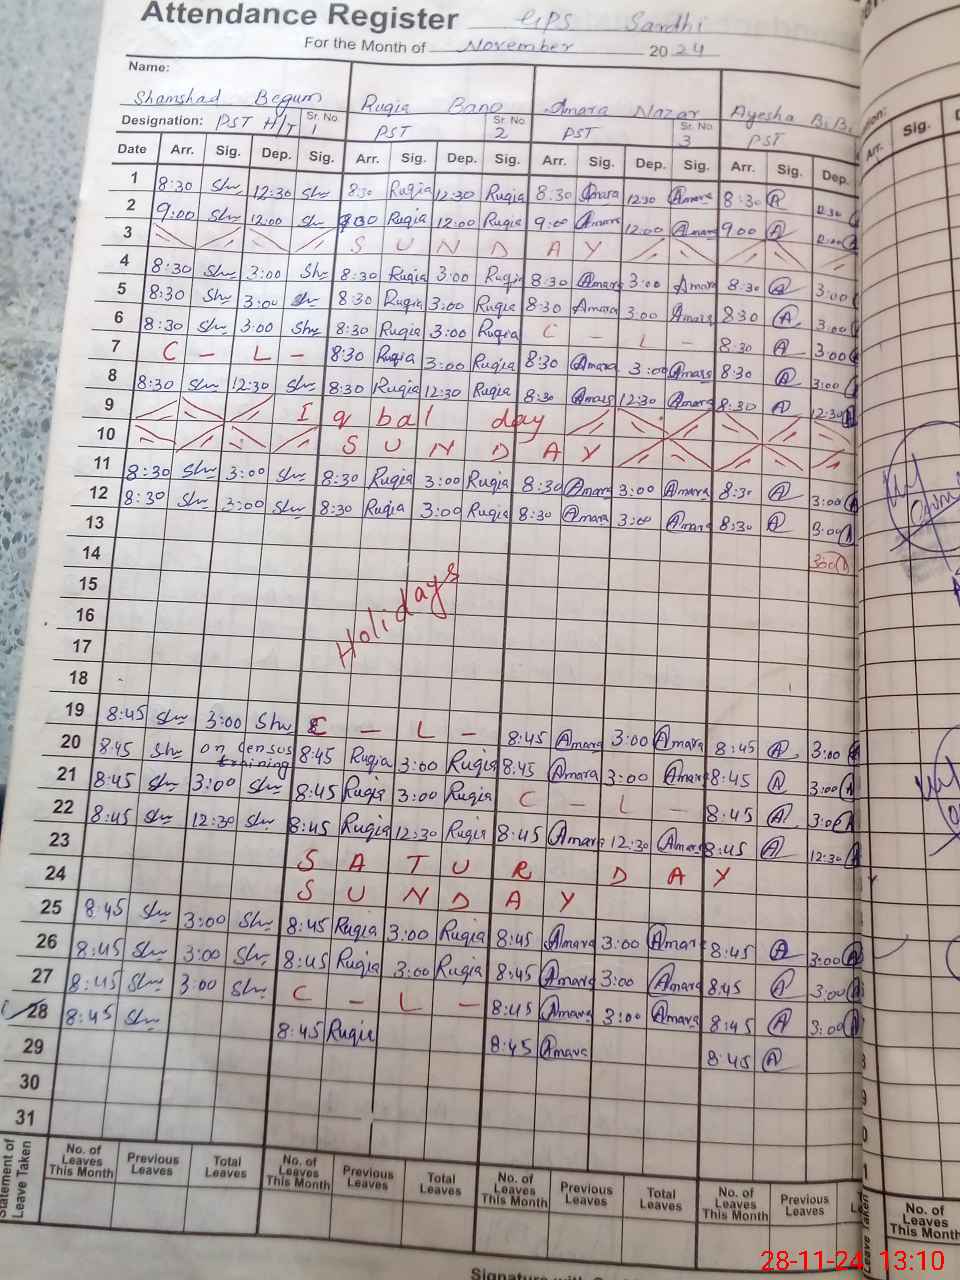 Attendance Register GPS Sandhi
For the Month of November 2024
Name:
Shamshad Begum Ruqia Bano Amara Nazar Ayesha BiBi
Designation: PST H/T Sr. No. 1 PST Sr. No. 2 PST Sr. No. 3 PST
Date Arr. Sig. Dep. Sig. Arr. Sig. Dep. Sig. Arr. Sig. Dep. Sig. Arr. Sig. Dep.
1 8:30 Sh 12:30 Sh 8:30 Ruqia 12:30 Ruqia 8:30 Amara 12:30 Amara 8:30 A 12:30
2 9:00 Sh 12:00 Sh 9:30 Ruqia 12:00 Ruqia 9:00 Amara 12:00 Amara 9:00 A 12:00 A
3 S U N D A Y
4 8:30 Sh 3:00 Sh 8:30 Ruqia 3:00 Ruqia 8:30 Amara 3:00 Amara 8:30 A 3:00
5 8:30 Sh 3:00 Sh 8:30 Ruqia 3:00 Ruqia 8:30 Amara 3:00 Amara 8:30 A 3:00
6 8:30 Sh 3:00 Sh 8:30 Ruqia 3:00 Ruqia C - L - 8:30 A 3:00
7 C - L - 8:30 Ruqia 3:00 Ruqia 8:30 Amara 3:00 Amara 8:30 A 3:00
8 8:30 Sh 12:30 Sh 8:30 Ruqia 12:30 Ruqia 8:30 Amara 12:30 Amara 8:30 A 12:30 A
9 Iqbal day
10 S U N D A Y
11 8:30 Sh 3:00 Sh 8:30 Ruqia 3:00 Ruqia 8:30 Amara 3:00 Amara 8:30 A 3:00 A
12 8:30 Sh 3:00 Sh 8:30 Ruqia 3:00 Ruqia 8:30 Amara 3:00 Amara 8:30 A 3:00 A
13 3:00 A
14
15 Holidays
16
17
18
19 8:45 Sh 3:00 Sh C - L - 8:45 Amara 3:00 Amara 8:45 A 3:00
20 8:45 Sh on census training 8:45 Ruqia 3:00 Ruqia 8:45 Amara 3:00 Amara 8:45 A 3:00 A
21 8:45 Sh 3:00 Sh 8:45 Ruqia 3:00 Ruqia C - L - 8:45 A 3:00 A
22 8:45 Sh 12:30 Sh 8:45 Ruqia 12:30 Ruqia 8:45 Amara 12:30 Amara 8:45 A 12:30 A
23 S A T U R D A Y
24 S U N D A Y
25 8:45 Sh 3:00 Sh 8:45 Ruqia 3:00 Ruqia 8:45 Amara 3:00 Amara 8:45 A 3:00 A
26 8:45 Sh 3:00 Sh 8:45 Ruqia 3:00 Ruqia 8:45 Amara 3:00 Amara 8:45 A 3:00 A
27 8:45 Sh 3:00 Sh C - L - 8:45 Amara 3:00 Amara 8:45 A 3:00 A
28 8:45 Sh 8:45 Ruqia 8:45 Amara 8:45 A
29
30
31
Statement of Leave Taken
No. of Leaves This Month Previous Leaves Total Leaves No. of Leaves This Month Previous Leaves Total Leaves No. of Leaves This Month Previous Leaves Total Leaves No. of Leaves This Month Previous Leaves
Arr. Sig.
Leave Taken
No. of Leaves This Month
28-11-24 13:10